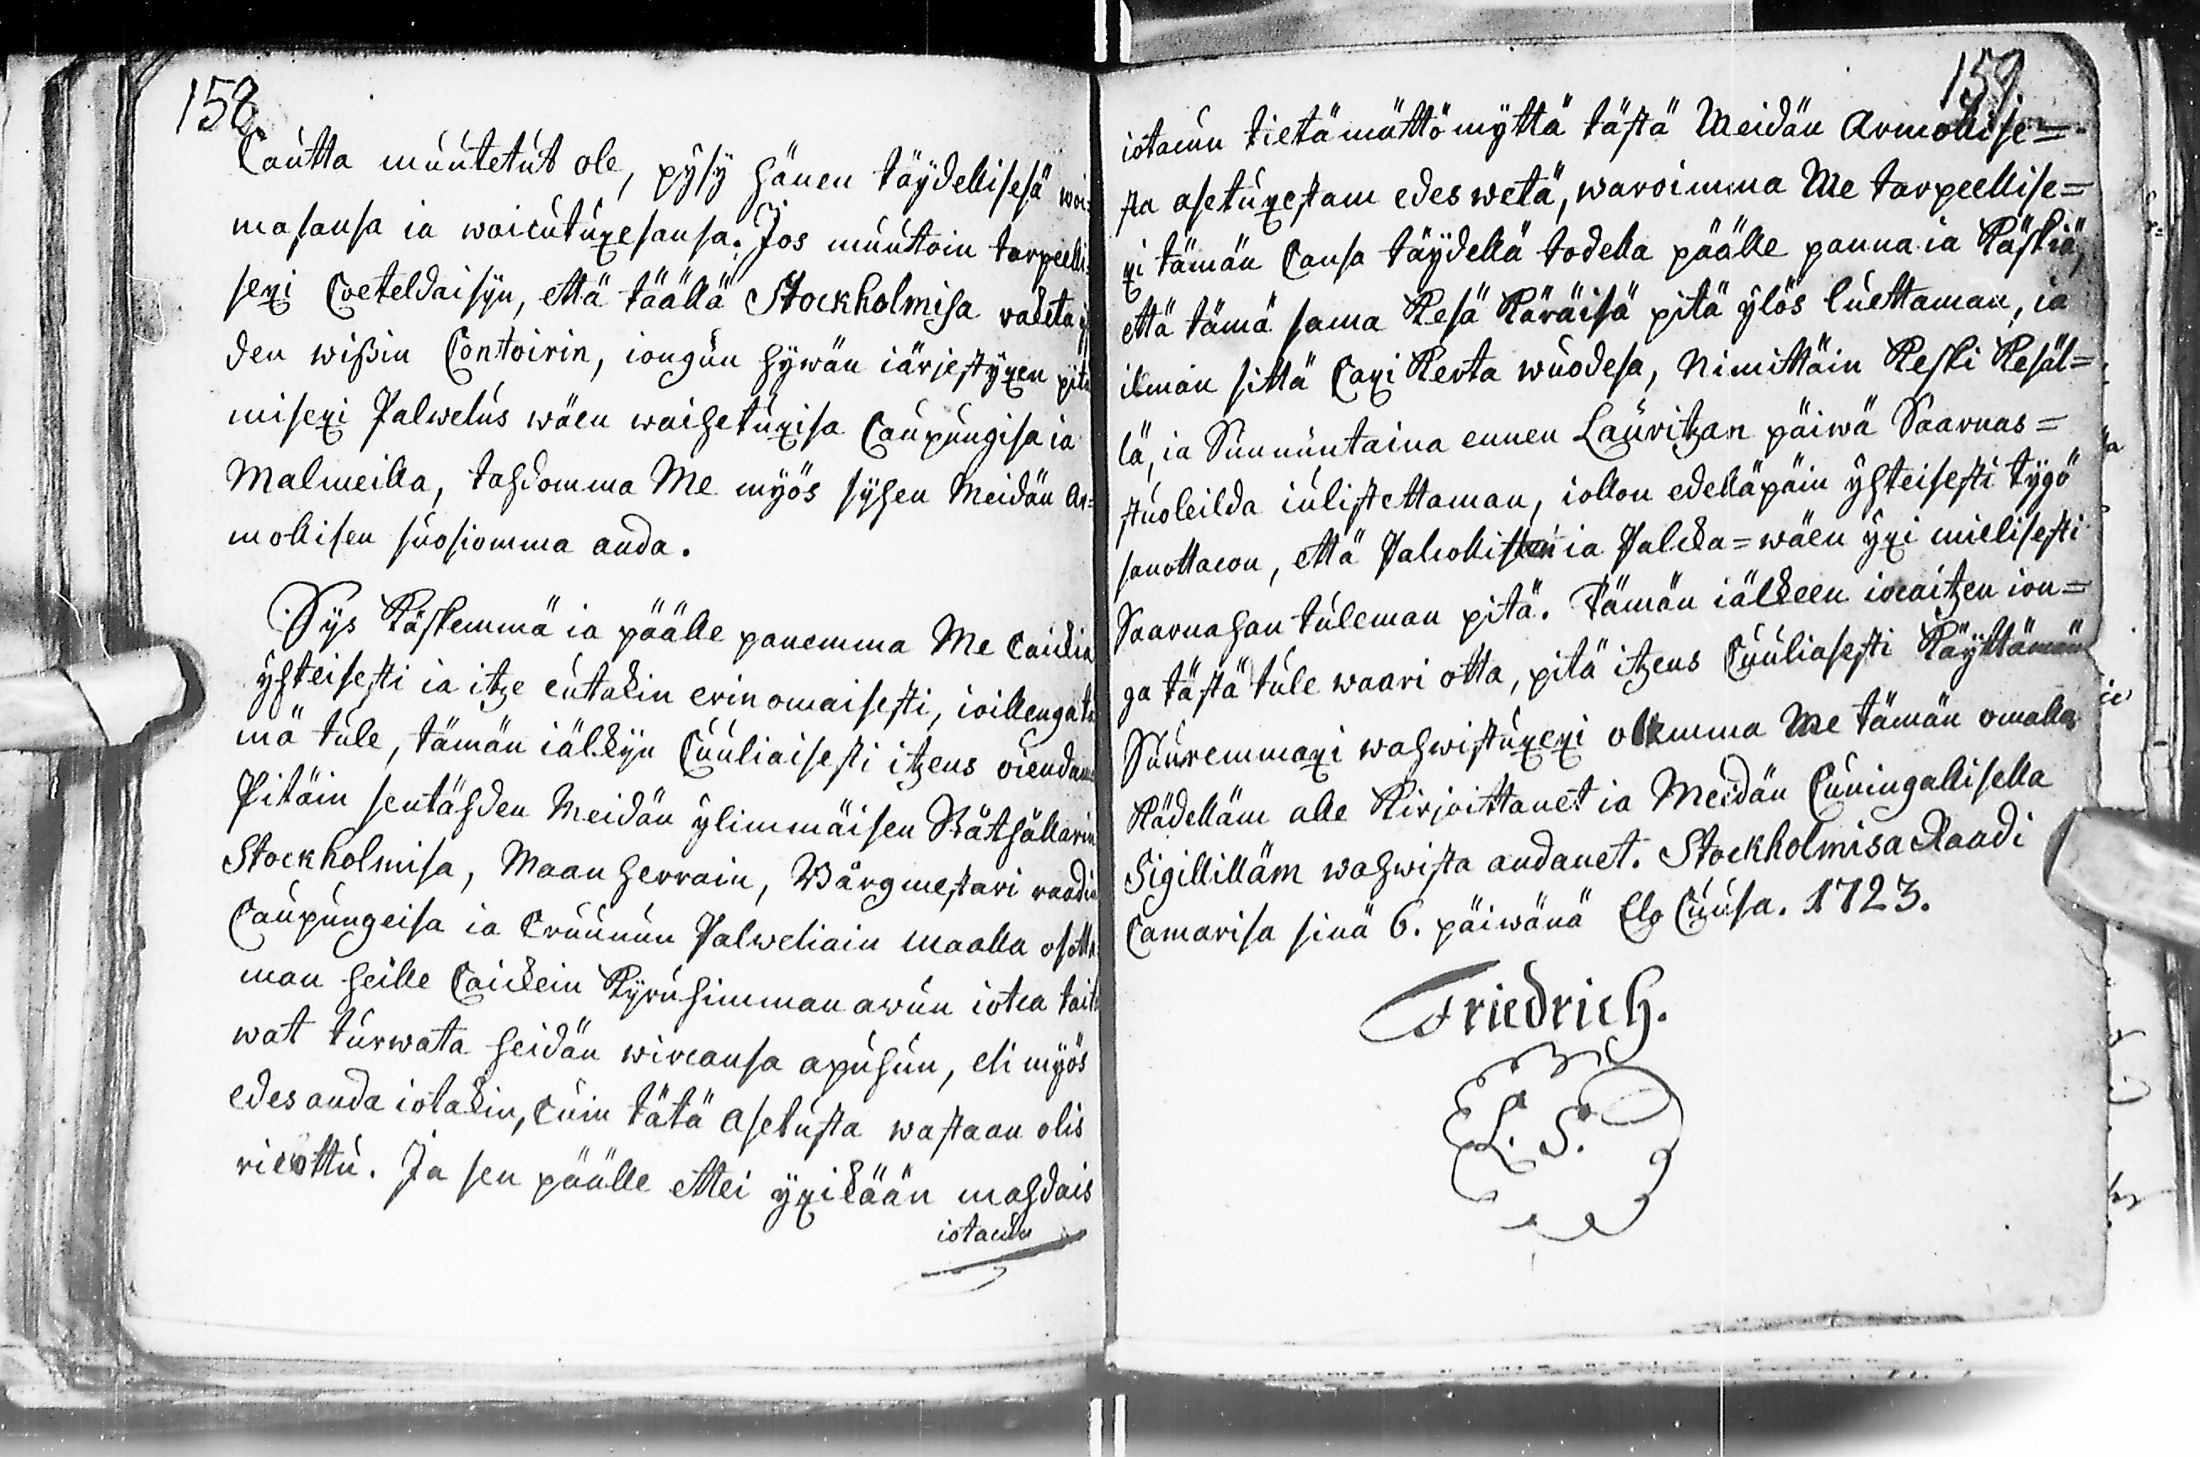 158.
Cautta muutetut ole, pysy hänen täydellisesä woi-
masansa ia waicutuxesansa. Jos muutoin tarpeelli-
sexi Coeteldaisijn, että täällä Stockholmisa raketa
den wißin Contoirin, iongun hywän iärjestyxen pitä
misexi Palwelus wäen waihetuxisa Caupungisa ia
Malmeilla, tahdomma Me myös sijhen Meidän Ar-
mollisen suosiomma anda.
Sijs Käskemmä ia päälle panemma Me Caickia
yhteisesti ia itze cutakin erinomaisesti, ioillenga tä
mä tule, tämän iälkijn Cuuliaisesti itzens oiendam
Pitäin sentähden Meidän ylimmäisen Ståthållarin
Stockholmisa, Maan herrain, Bårgmestari raadin
Caupungeisa ia Cruunun Palweliain maalla osotta
man heille Caickein Kyruhimman awun iotca tait
wat turwata heidän wircansa apuhun, eli myös
edesanda iotakin, Cuin tätä Asetusta wastaan olis
ricottu. Ja sen päälle ettei yxikään mahdais
iotacun
159.
iotacun tietämättömyttä tästä Meidän Armollise=
sta asetuxestam edes wetä, waroimma Me tarpeellise=
xi tämän Cansa täydellä todella päälle panna ia Käskiä,
että tämä sama Kesä Käräisä pitä ylös luettaman, ia
ilman sittä Caxi Kerta wuodesa, Nimittäin Keski Kesäl=
lä, ia Sunnuntaina ennen Lauritzan päiwä Saarnas=
stuoleilda iulistettaman, iollon edelläpäin yhteisesti tygö
sanottacon, että Palcollisten ia Palcka=wäen yxi mielisesti
Saarnahan tuleman pitä. Tämän iälkeen iocaitzen ion=
ga tästä tule waari otta, pitä itzens Cuuliasesti Käyttämän
Suuremmaxi wahwistuxexi olemma Me tämän omalla
Kädelläm alle Kirjoittanet ia Meidän Cuningallisella
Sigillilläm wahwista andanet. Stockholmisa Raadi
Camarisa sinä 6. päiwänä Elo Cuusa. 1723.
Friedrich.
L. S.